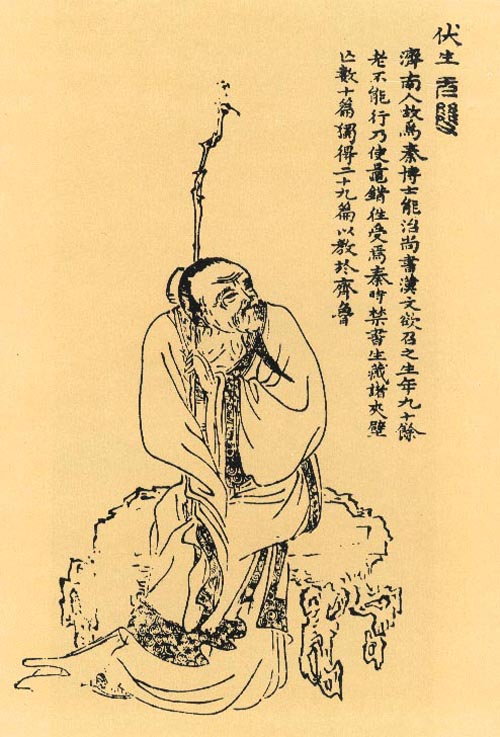 伏生
濟南人故爲秦博士能治尚書漢文欲召之生年九十餘
老不能行乃使鼂錯往受爲秦時禁書生藏諸夾壁
亾數十篇獨得二十九篇以教於齊魯